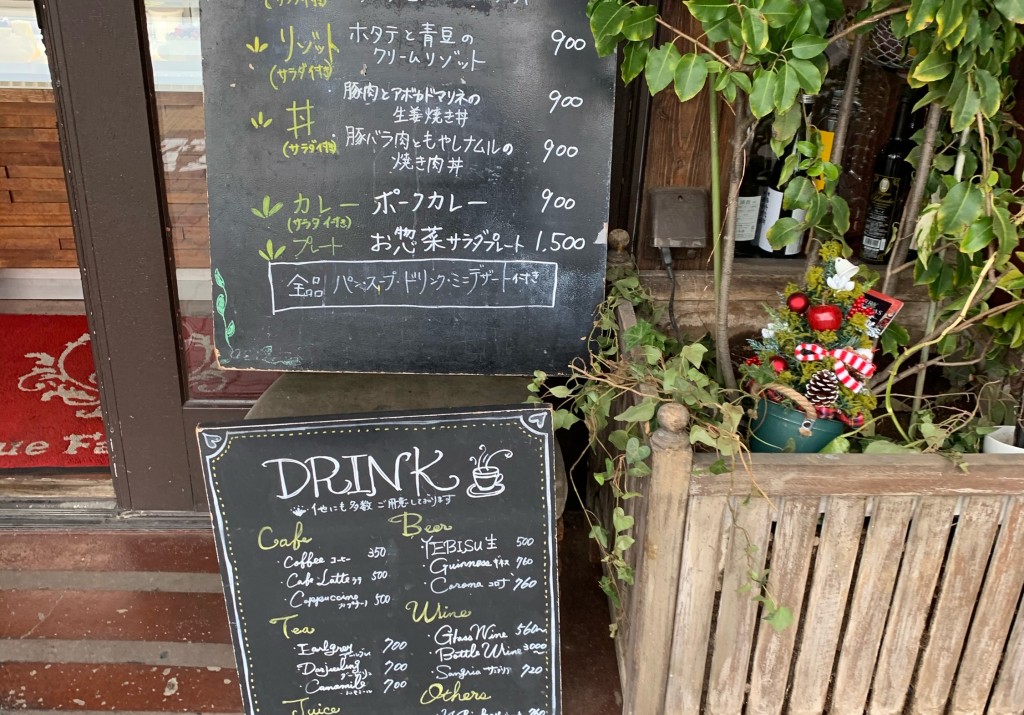 リゾット
(サラダ付き)
ホタテと青豆の
クリームリゾット
900
丼
(サラダ付き)
豚肉とアボカドマリネの
生姜焼き丼
900
豚バラ肉ともやしナムルの
焼き肉丼
900
カレー
(サラダ付き)
ポークカレー
900
プレート
お惣菜サラダプレート 1.500
全品 パン・スープ・ドリンク・ミニデザート付き
DRINK
他にも多数ご用意しております
Cafe
Coffee コーヒー 350
Cafe Latte ラテ 500
Cappuccino カプチーノ 500
Tea
Earlgrey 700
Darjeeling 700
Camomile 700
Juice
Beer
YEBISU生 500
Guinness ギネス 760
Corona コロナ 760
Wine
Glass Wine 560〜
Bottle Wine 3000〜
Sangria サングリア 720
Others
760
ue Fa